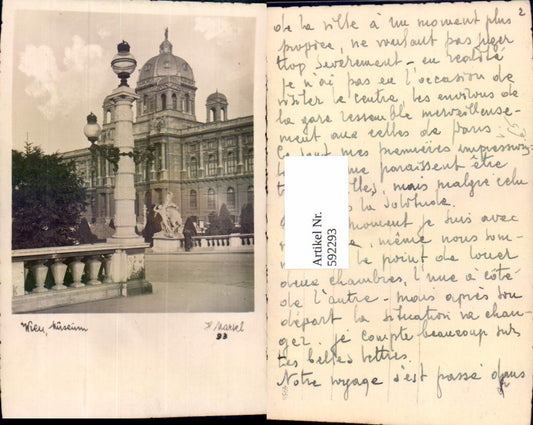 Wien, Museum
93
2
de la ville à un moment plus
propice, ne voulant pas juger
trop sévèrement - en réalité
je n'ai pas eu l'occasion de
visiter le centre, les environs de
la gare ressemble merveilleuse-
ment aux celles de Paris
Ce sont mes premières impressions
me paraissent être
mais malgré cela
la
moment je suis avec
même nous som-
le point de louer
deux chambres, l'une à côté
de l'autre - mais après son
départ la situation va chan-
ger. je compte beaucoup sur
tes belles lettres.
Notre voyage s'est passé dans
Artikel Nr.
592293